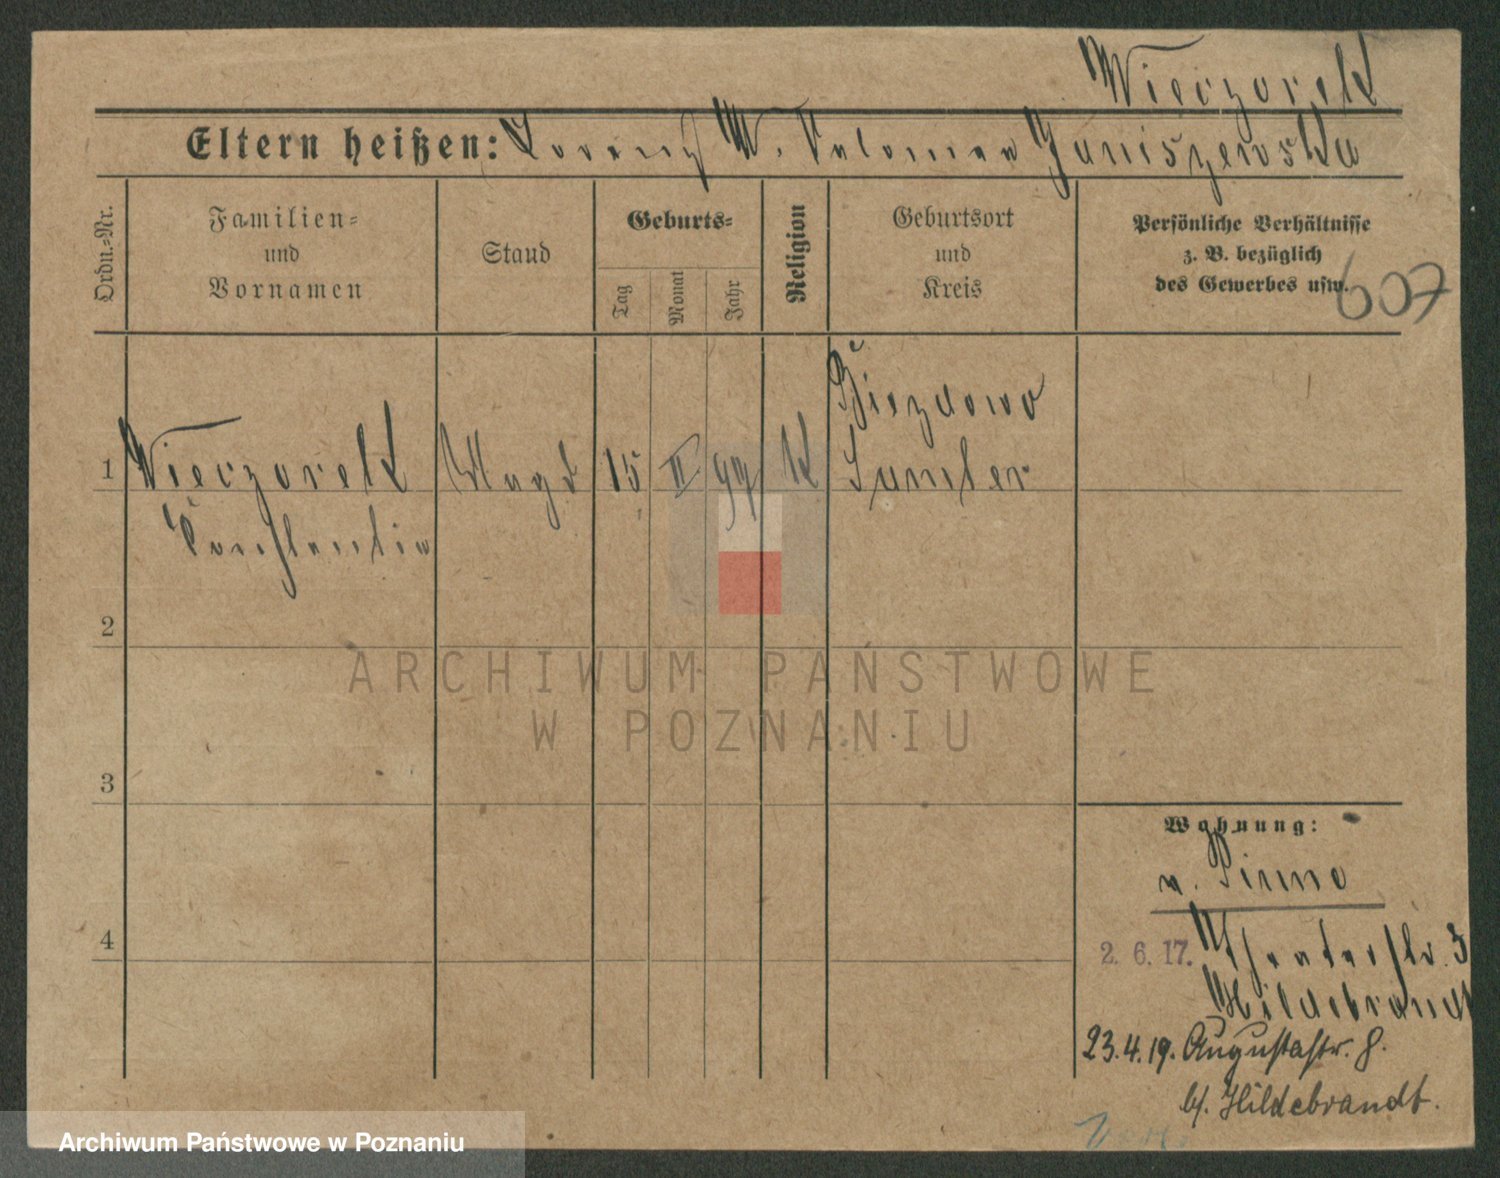 Wieczorek
Eltern heißen: Lorenz W. Salomea Janiszewska
Ordn.-Nr.
Familien-
und
Vornamen
Stand
Geburts-
Tag
Monat
Jahr
Religion
Geburtsort
und
Kreis
Persönliche Verhältnisse
z. B. bezüglich
des Gewerbes usw.
607
1 Wieczorek Magd 15 II 99 K
Biezdrowo
Samter
Constantia
2
3
4
Wohnung:
v. Pinne
2. 6. 17. Theaterstr. 3
Hildebrandt
23.4.19. Augustastr. 8.
b/. Hildebrandt.
ARCHIWUM PAŃSTWOWE
W POZNANIU
Archiwum Państwowe w Poznaniu